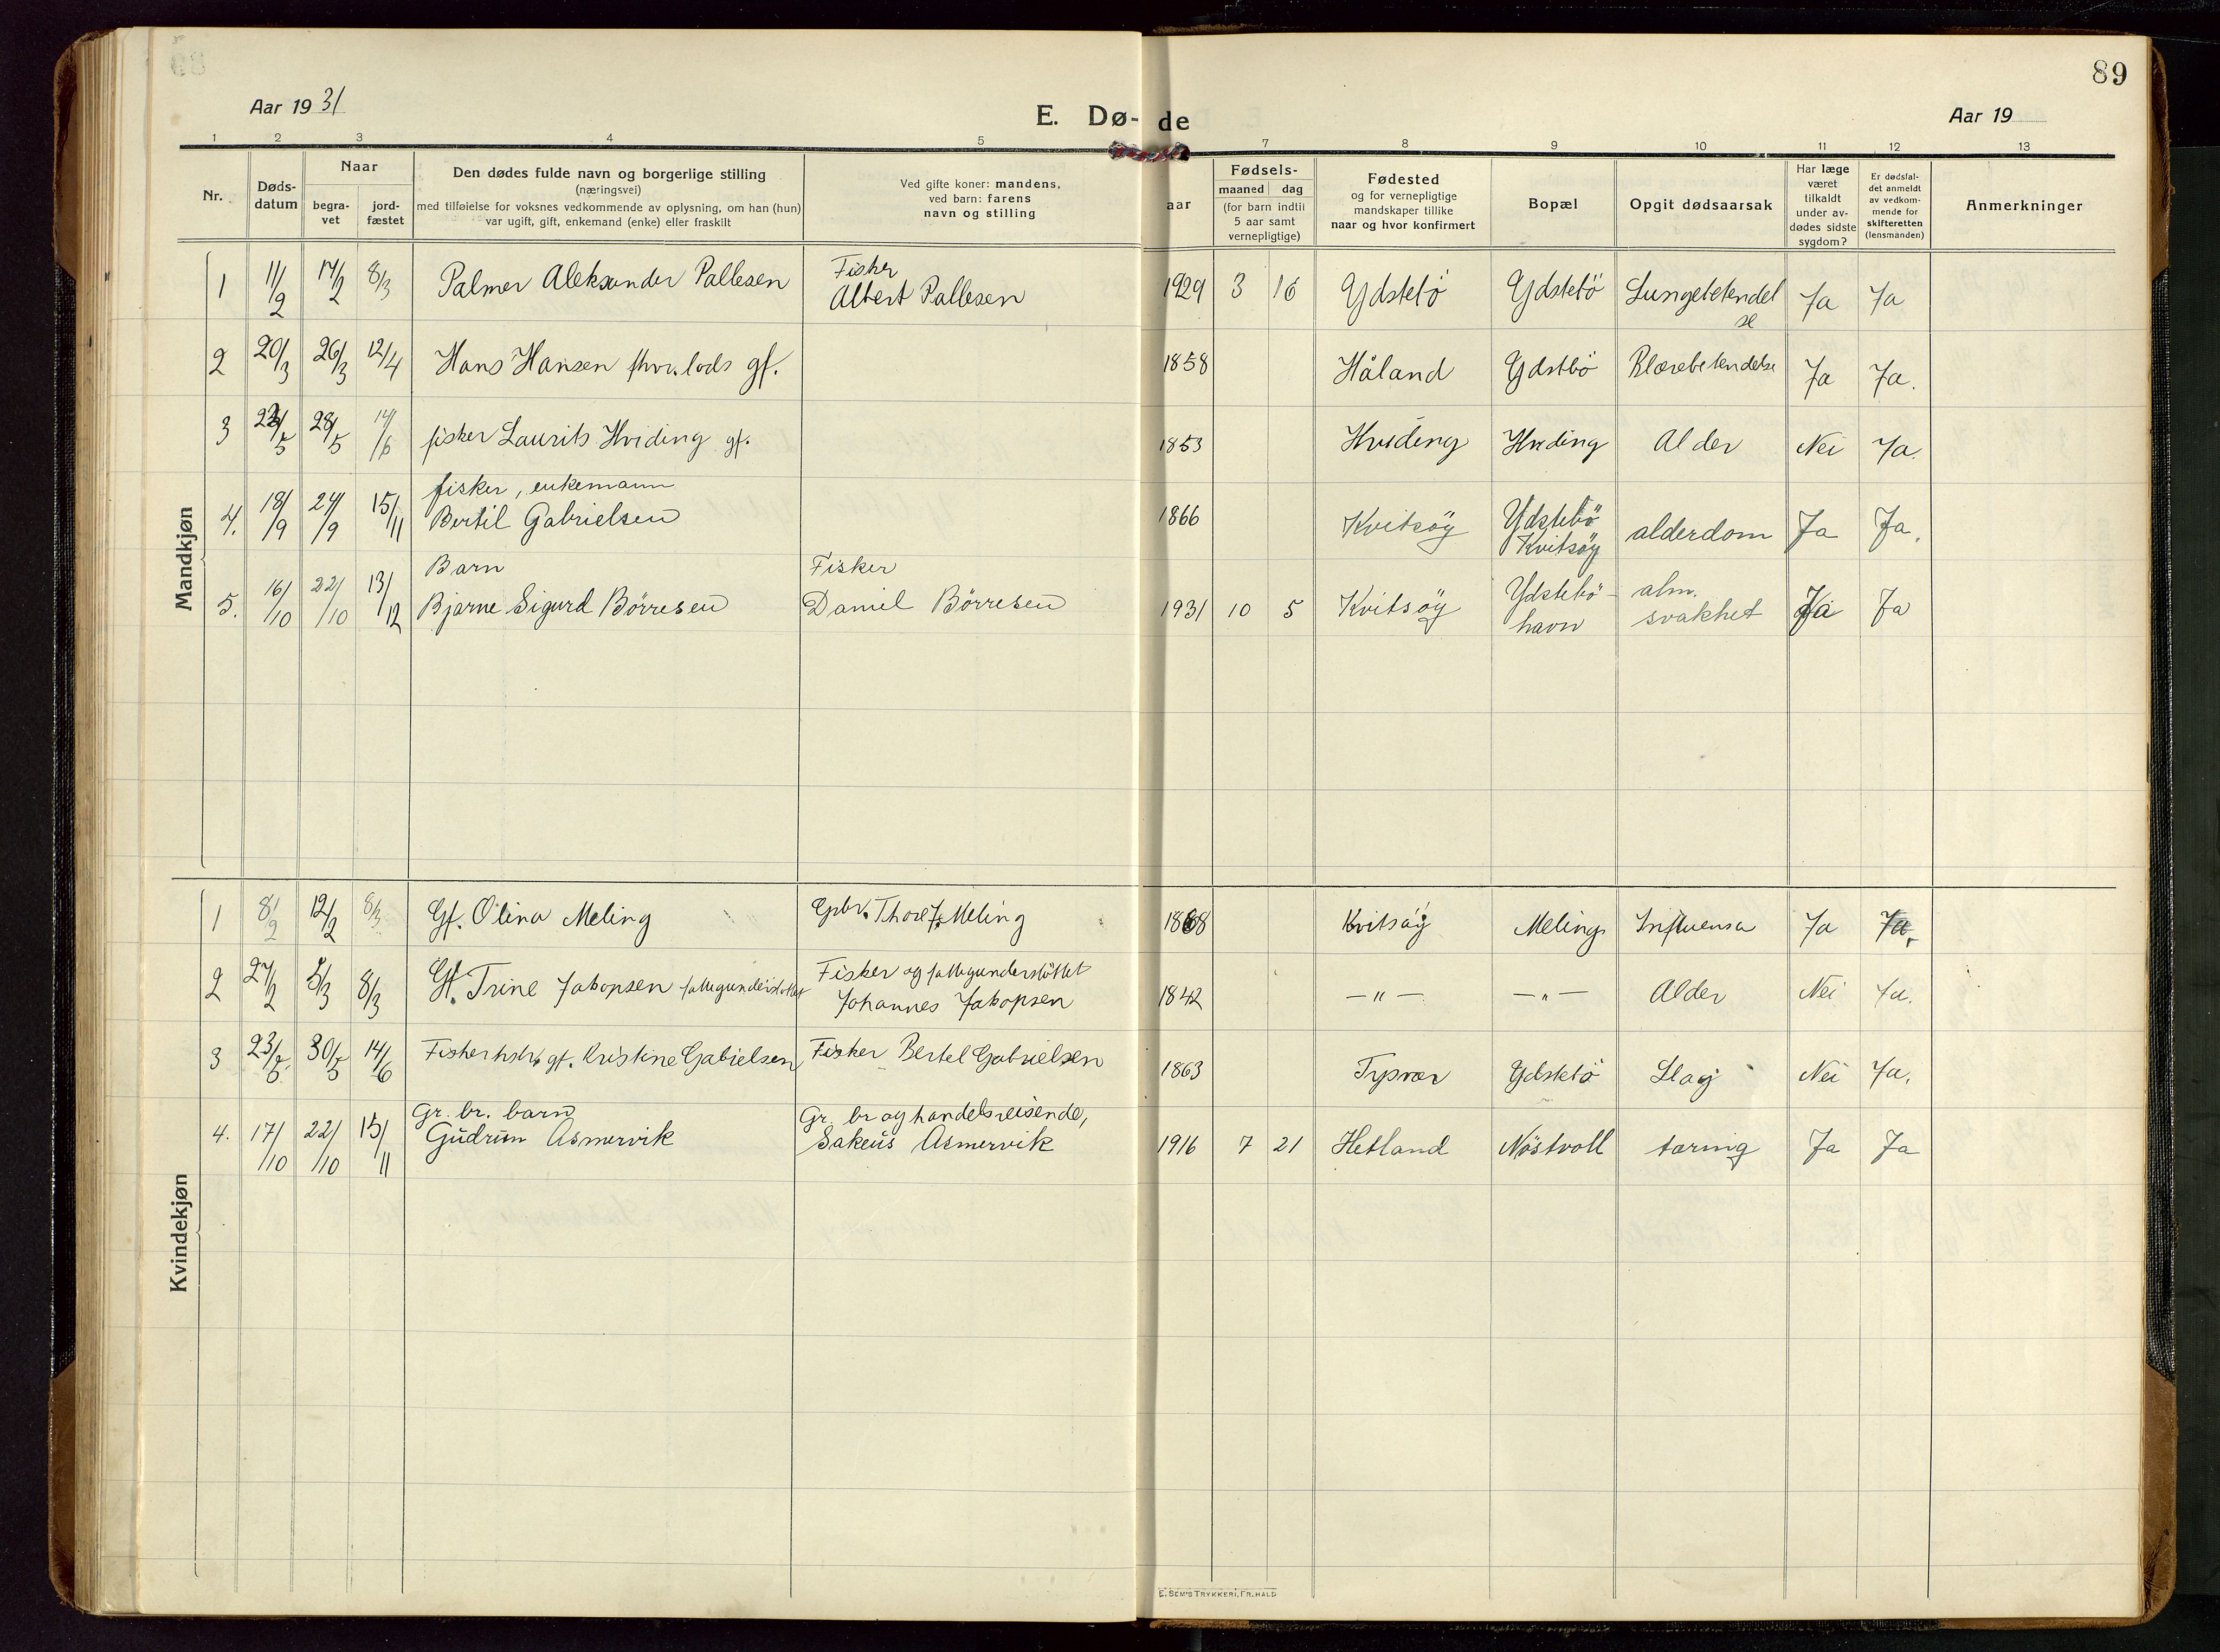 89
Aar 1931
E. Dø- de
Aar 19
1 2 3 4 5 7 8 9 10 11 12 13
Nr.
Døds-
datum
Naar
begra-
vet
jord-
fæstet
Den dødes fulde navn og borgerlige stilling
(næringsvei)
med tilføielse for voksnes vedkommende av oplysning, om han (hun)
var ugift, gift, enkemand (enke) eller fraskilt
Ved gifte koner: mandens,
ved barn: farens
navn og stilling
aar
Fødsels-
maaned dag
(for barn indtil
5 aar samt
vernepligtige)
Fødested
og for vernepligtige
mandskaper tillike
naar og hvor konfirmert
Bopæl
Opgit dødsaarsak
Har læge
været
tilkaldt
under av-
dødes sidste
sygdom?
Er dødsfal-
det anmeldt
av vedkom-
mende for
skifteretten
(lensmanden)
Anmerkninger
Mandkjøn
1 11/2 17/2 8/3 Palmer Aleksander Pallesen Fisker
Albert Pallesen 1929 3 16 Ydstebö Ydstebö Lungebetendel
se Ja Ja
2 20/3 26/3 12/4 Hans Hansen fhv. lods gf. 1858 Håland Ydstbö Blærebetendelse Ja Ja.
3 28/5 14/6 fisker Laurits Hviding gf. 1853 Hviding Hviding Alder Nei Ja.
fisker, enkemann
4. 18/9 24/9 15/11 Bertil Gabrielsen 1866 Kvitsöy Ydstebö
Kvitsöy alderdom Ja Ja.
Barn Fisker
5. 16/10 22/10 13/12 Bjarne Sigurd Börresen Daniel Börresen 1931 10 5 Kvitsöy Ydstebö-
havn alm.
svakhet Ja Ja
Kvindekjøn
1 8/2 12/2 8/3 Gf. Olina Meling Gbr. Thore J. Meling 1868 Kvitsöy Meling Influensa Ja Ja.
2 27/2 5/3 8/3 Gf. Trine Jakopsen fattigunderstöttet Fisker og fattigunderstöttet
Johannes Jakopsen 1842 —"— —"— Alder Nei Ja.
3 23/5 30/5 14/6 gf. Kristine Gabielsen Fisker Bertel Gabrielsen 1863 Tysvær Ydstebö Slag Nei Ja.
Gr. br. barn Gr. br og handelsreisende,
4. 17/10 22/10 15/11 Gudrun Asmervik Sakeus Asmervik 1916 7 21 Hetland Nöstvoll tæring Ja Ja
E. SEM'S TRYKKERI, FR.HALD